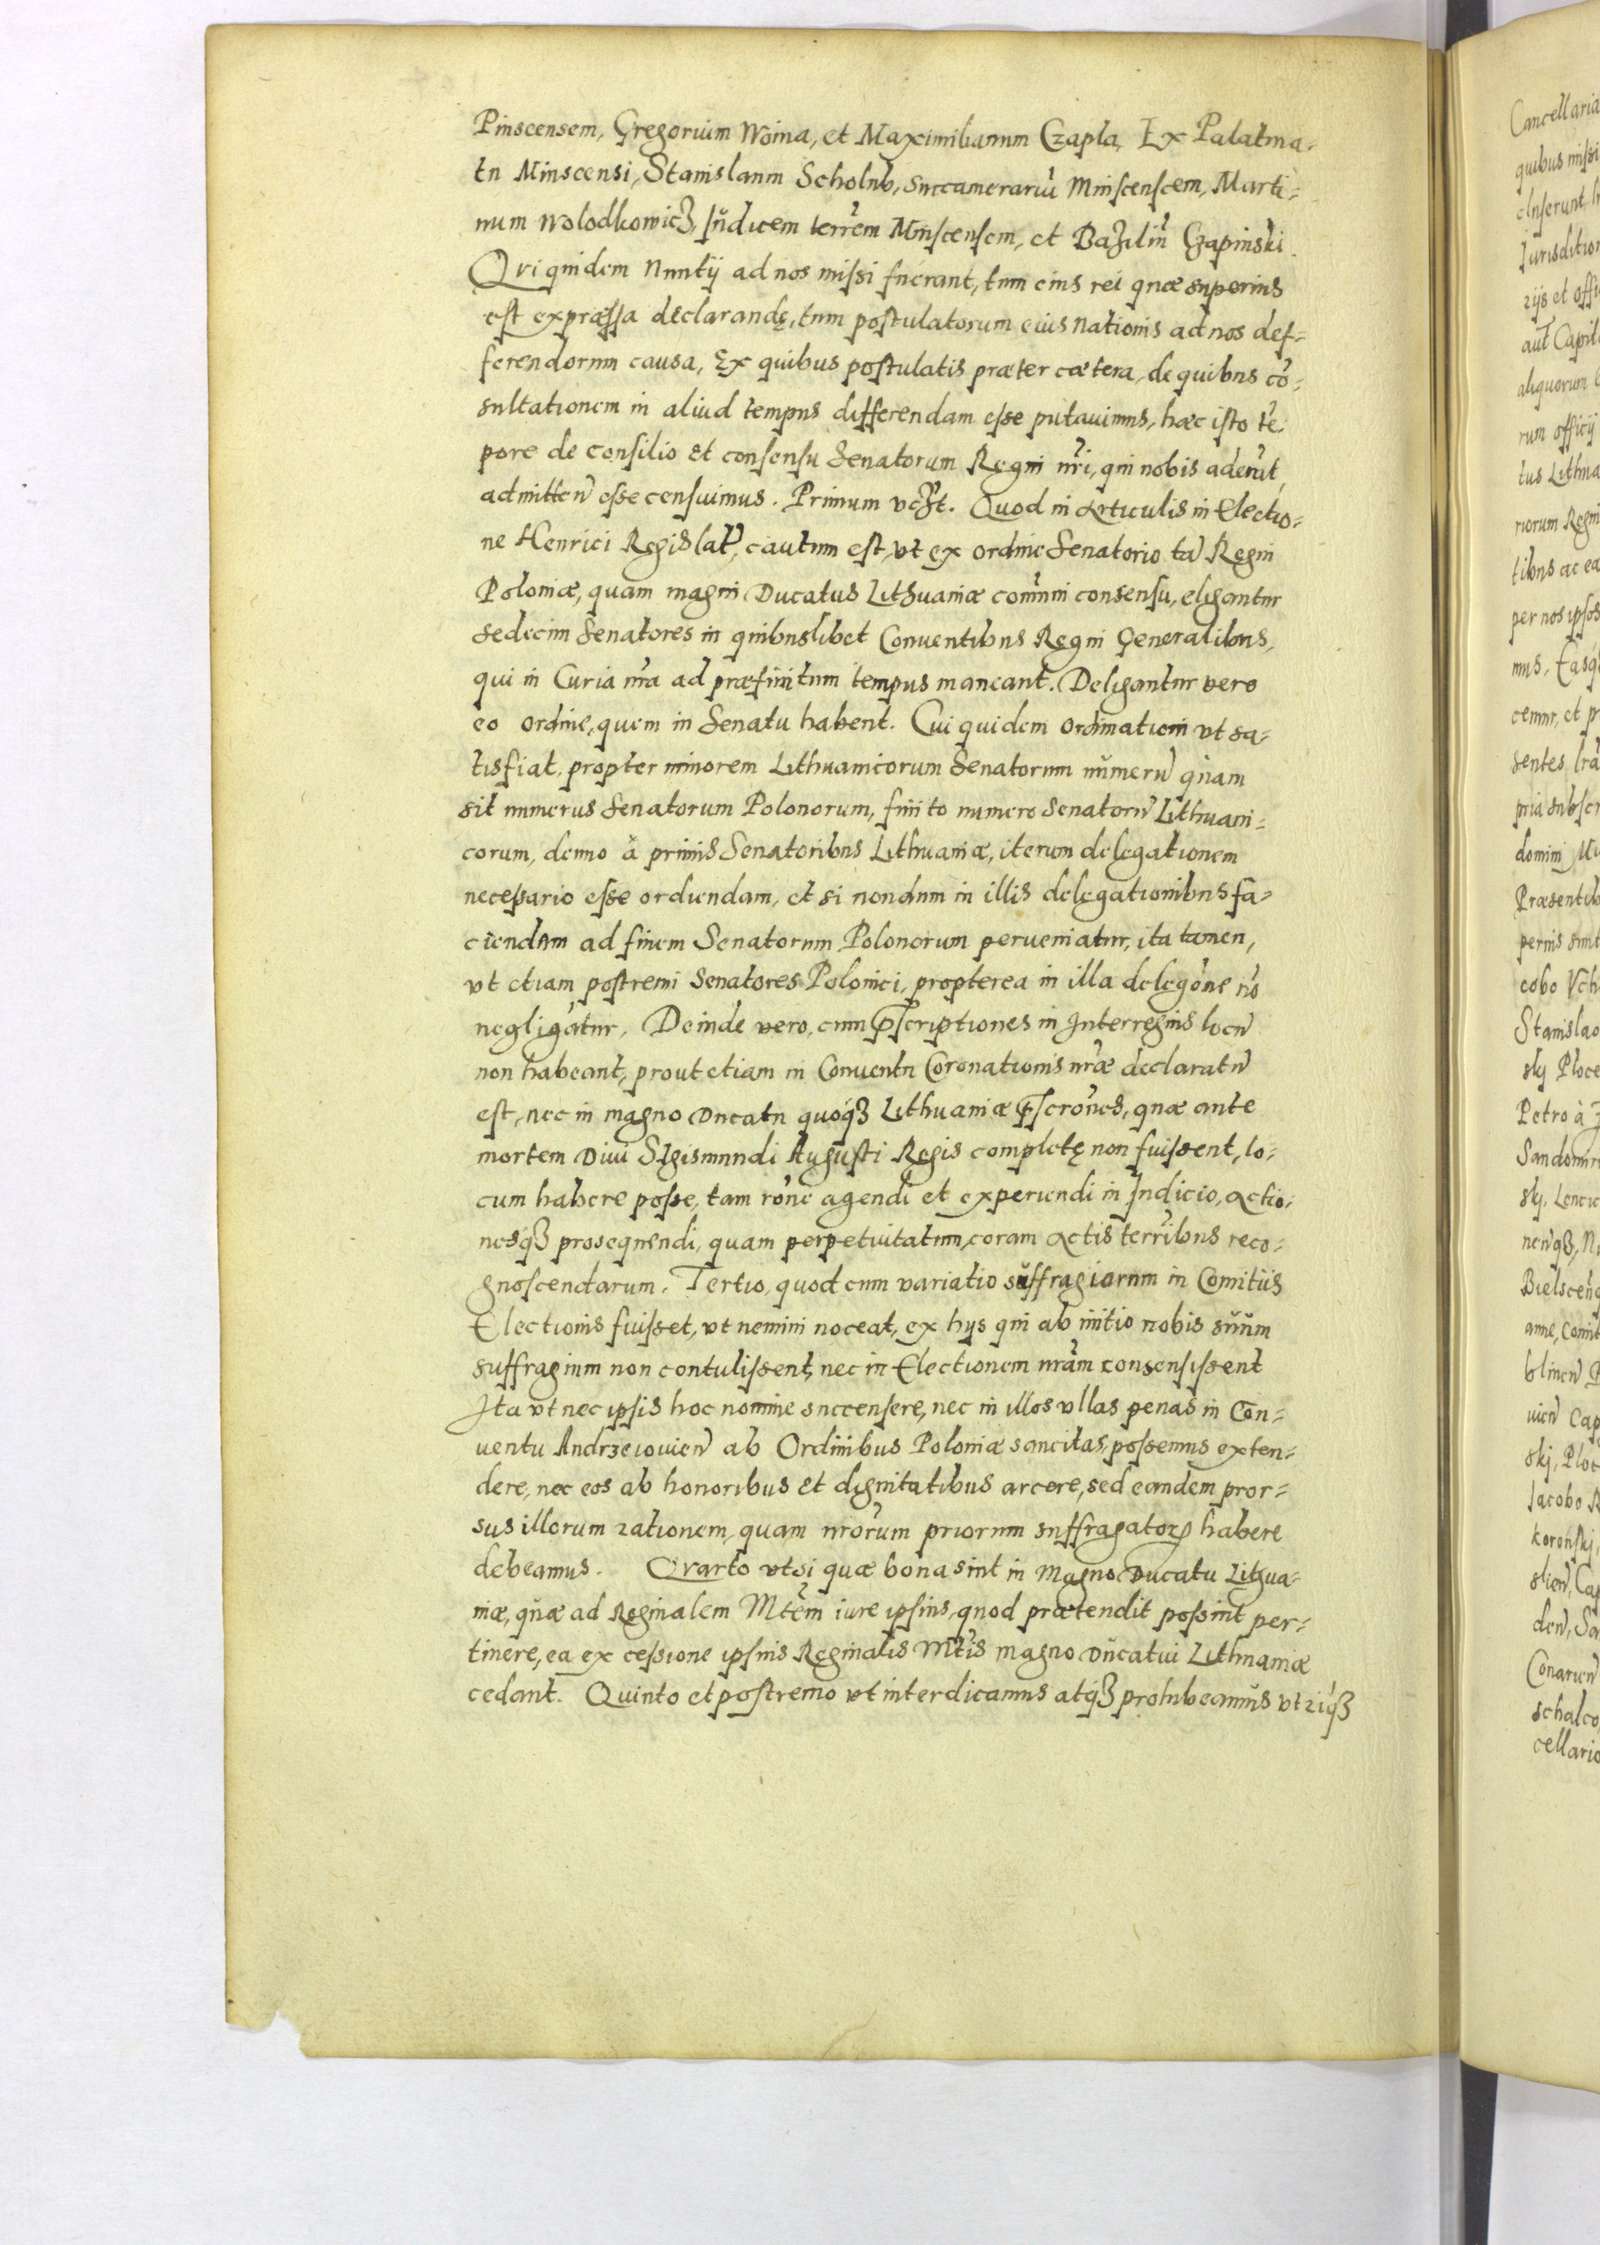 Pinscensem, Gregorium Woina, et Maximilianum Czapla, Ex Palatina-
tu Minscensi, Stanislaum Scholub, Succamerariũ Minscensem, Marti-
num Wolodkowicz, Iudicem terrẽm Minscensem, et Baziliũ Czapinski.
Qui quidem Nuntij ad nos missi fuerant, tum eius rei quæ superius
est expræssa declarandę, tum postulatorum eius nationis ad nos def-
ferendorum causa, Ex quibus postulatis præter cætera, de quibus cõ-
sultationem in aliud tempus differendam esse putauimus, hæc isto tẽ
pore de consilio et consensu Senatorum Regni nr̃i, qui nobis aderãt,
admitteñ esse censuimus. Primum vcꝫt. Quod in Articulis in Electio-
ne Henrici Regis lat̃, cautum est, vt ex ordine Senatorio tã Regni
Poloniæ, quam magni Ducatus Lithuaniæ com̃uni consensu, eligantur
Sedecim Senatores in quibuslibet Conuentibus Regni Generalibus,
qui in Curia nr̃a ad præfinitum tempus maneant. Deligantur vero
eo ordine, quem in Senatu habent. Cui quidem Ordinationi vt sa-
tisfiat, propter minorem Lithuanicorum Senatorum numerũ quam
sit numerus Senatorum Polonorum, finito numero Senatorũ Lithuani-
corum, denuo à primis Senatoribus Lithuaniæ, iterum delegationem
necessario esse ordiendam, et si nondum in illis delegationibus fa-
ciendam ad finem Senatorum Polonorum perueniatur, ita tamen,
vt etiam postremi Senatores Polonici, propterea in illa delegõne nõ
negligãtur. Deinde vero, cum p̃scriptiones in Interregnis locũ
non habeant, prout etiam in Conuentu Coronationis nr̃æ declaratũ
est, nec in magno Ducatu quoqꝫ Lithuaniæ p̃scrõnes, quæ ante
mortem Diui Sigismundi Augusti Regis completę non fuissent, lo-
cum habere posse, tam rõne agendi et experiendi in Iudicio, actio-
nesqꝫ prosequendi, quam perpetuitatum, coram actis terr̃ibus reco-
gnoscendarum. Tertio, quod cum variatio suffragiorum in Comitiis
Electionis fuisset, vt nemini noceat, ex hys qui ab initio nobis suum
suffragium non contulissent, nec in Electionem nr̃am consensissent
Ita vt nec ipsis hoc nomine succensere, nec in illos vllas penas in Con-
uentu Andrzeiouieñ ab Ordinibus Poloniæ sancitas, possemus exten-
dere, nec eos ab honoribus et dignitatibus arcere, sed eandem pror-
sus illorum rationem, quam nr̃orum priorum suffragatorꝝ habere
debeamus. Qvarto vt si quæ bona sint in Magno Ducatu Lithua-
niæ, quæ ad Reginalem Mtẽm iure ipsius, quod prætendit possint per-
tinere, ea ex cessione ipsius Reginalis Mtis magno Ducatui Lithuaniæ
cedant. Quinto et postremo vt interdicamus atqꝫ prohibeamus vtriqꝫ